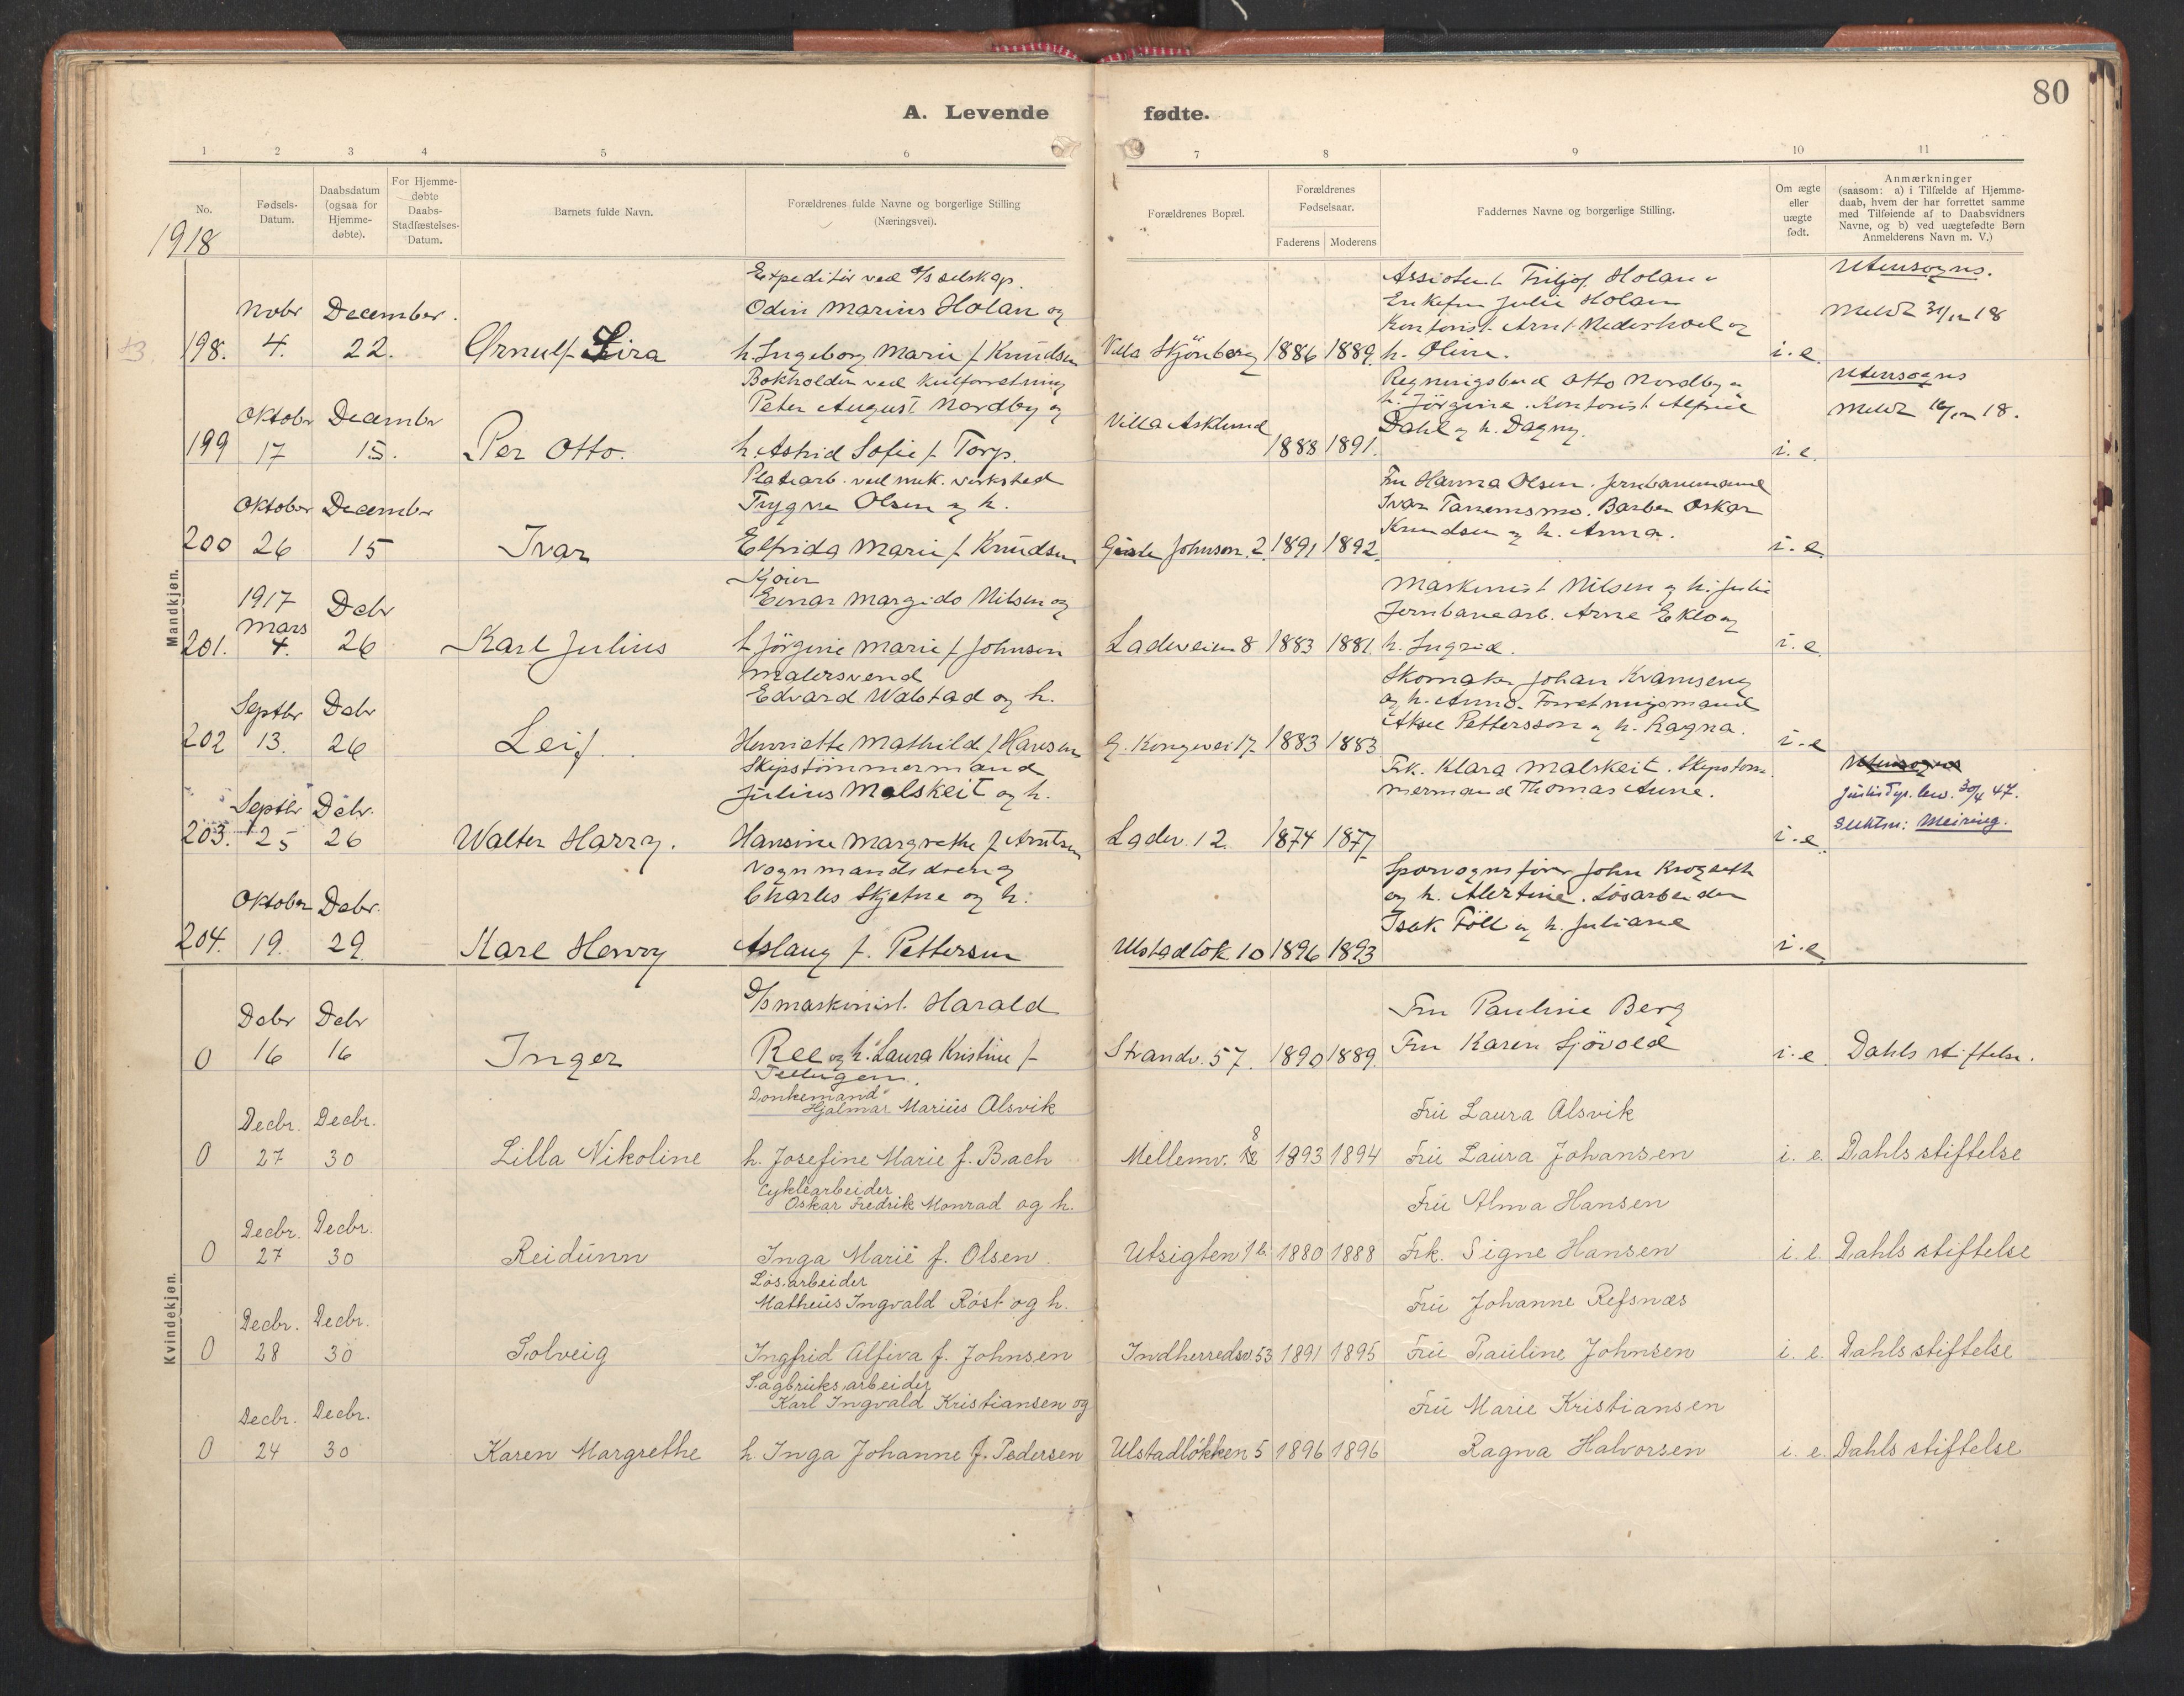 80
A. Levende fødte.
1 2 3 4 5 6 7 8 9 10 11
No.
Fødsels-Datum.
Daabsdatum (ogsaa for Hjemme-døbte).
For Hjemme-døbte Daabs-Stadfæstelses-Datum.
Barnets fulde Navn.
Forældrenes fulde Navne og borgerlige Stilling (Næringsvei).
Forældrenes Bopæl.
Forældrenes Fødselsaar.
Faderens Moderens
Faddernes Navne og borgerlige Stilling.
Om ægte eller uægte født.
Anmærkninger
(saasom: a) i Tilfælde af Hjemme-
daab, hvem der har forrettet samme
med Tilføiende af to Daabsvidners
Navne, og b) ved uægtefødte Børn
Anmelderens Navn m. V.)
1918
Mandkjøn.
Expeditør ved selskap. Utensogns.
Nobr December. Odin Marius Holan og Enkefru Julie Holan
Kontorist Arnt
198. 4. 22. Ørnulf Lira h. Ingeborg Marie f. Knudsen Villa Skjönberg 1886 1889 h. Oline. i.e.
Bokholder ved kulforretning Otto Nordby Utensogns
Peter August Nordby og h. Jörgine. Kontorist
Oktobr Decembr Villa Asklund Dahl og h. Dagny.
199 17 15. Per Otto. h. Astrid Sofie f. Torp. 1888 1891. i.e.
Platearb. ved mek. verksted Fru Hanna Olsen. Jernbanemand
Oktober Decembr Trygve Olsen og h. Ivar Tanemsmo. Barber Oskar
200 26 15 Ivar Elfrida Marie f. Knudsen Johnson. 2 1891 1892 Knudsen og h. Anna. i.e.
1917 Debr Einar Margido Nilsen og Maskinist Nilsen og h. Julie
Mars Jernbanearb. Arne Eklo og
201. 4. 26 Karl Julius h. Jörgine Marie f. Johnsen Ladeveien 8 1883 1881. h. Ingrid. i.e.
Malersvend Skomaker Johan
Septbr Debr Edvard Walstad og h. og h. Anna. Forretningsmand
202 13. 26 Leif. Henriette Mathilde f. Hansen G. Kongevei 17 1883 1883 Aksel Pettersson og h. Ragna. i.e
Skipstömmermand Frk. Klara Malskeit. Skipstöm- Utensogns
Septbr Debr. Julius Malskeit og h. mermand Thomas Aune. 30/4 47.
203. 25 26 Walter Harry. Hansine Margrethe f. Arntsen Ladev. 12. 1874 1877 i.e. Slektsn: Meiring.
Vognmandsdreng Sporvognsförer John Krogseth
Oktober Debr. Charles Skjetne og h. og h. Albertine. Lösarbeider
204. 19. 29 Karl Henry Aslaug f. Pettersen Ulstadlök 10 1896 1893 Isak Föll og h. Juliane i.e
Kvindekjøn.
D/s maskinist. Harald Fru Pauline Berg
Debr Debr
0 16 16 Inger Ree og h. Laura Kristine f. Strandv. 57. 1890 1889. Fru Karen Sjövold i.e Dahls stiftelse.
Donkemand
Decbr. Decbr. Hjalmar Marius Alsvik Fru Laura Alsvik
8
0 27 30 Lilla Nikoline h. Josefine Marie f. Bach Mellemv. 1893 1894 Fru Laura Johansen i. e. Dahls stiftelse
Cyklearbeider
Decbr. Decbr. Oskar Fredrik Monrad og h. Fru Alma Hansen
0 27 30 Reidunn Inga Marie f. Olsen. Utsigten 1b. 1880 1888 Frk. Signe Hansen i. e. Dahls stiftelse
Lösarbeider
Decbr. Decbr. Matheus Ingvald Röst og h. Fru Johanne Refsnæs
0 28 30 Solveig Ingfrid Alfiva f. Johnsen Indherredsv. 53 1891 1895 Fru Pauline Johnsen i. e. Dahls stiftelse
Sagbruksarbeider
Decbr. Decbr. Karl Ingvald Kristiansen og Fru Marie Kristiansen
0 24 30 Karen Margrethe h. Inga Johanne f. Pedersen Ulstadlökken 5 1896 1896 Ragna Halvorsen i. e. Dahls stiftelse